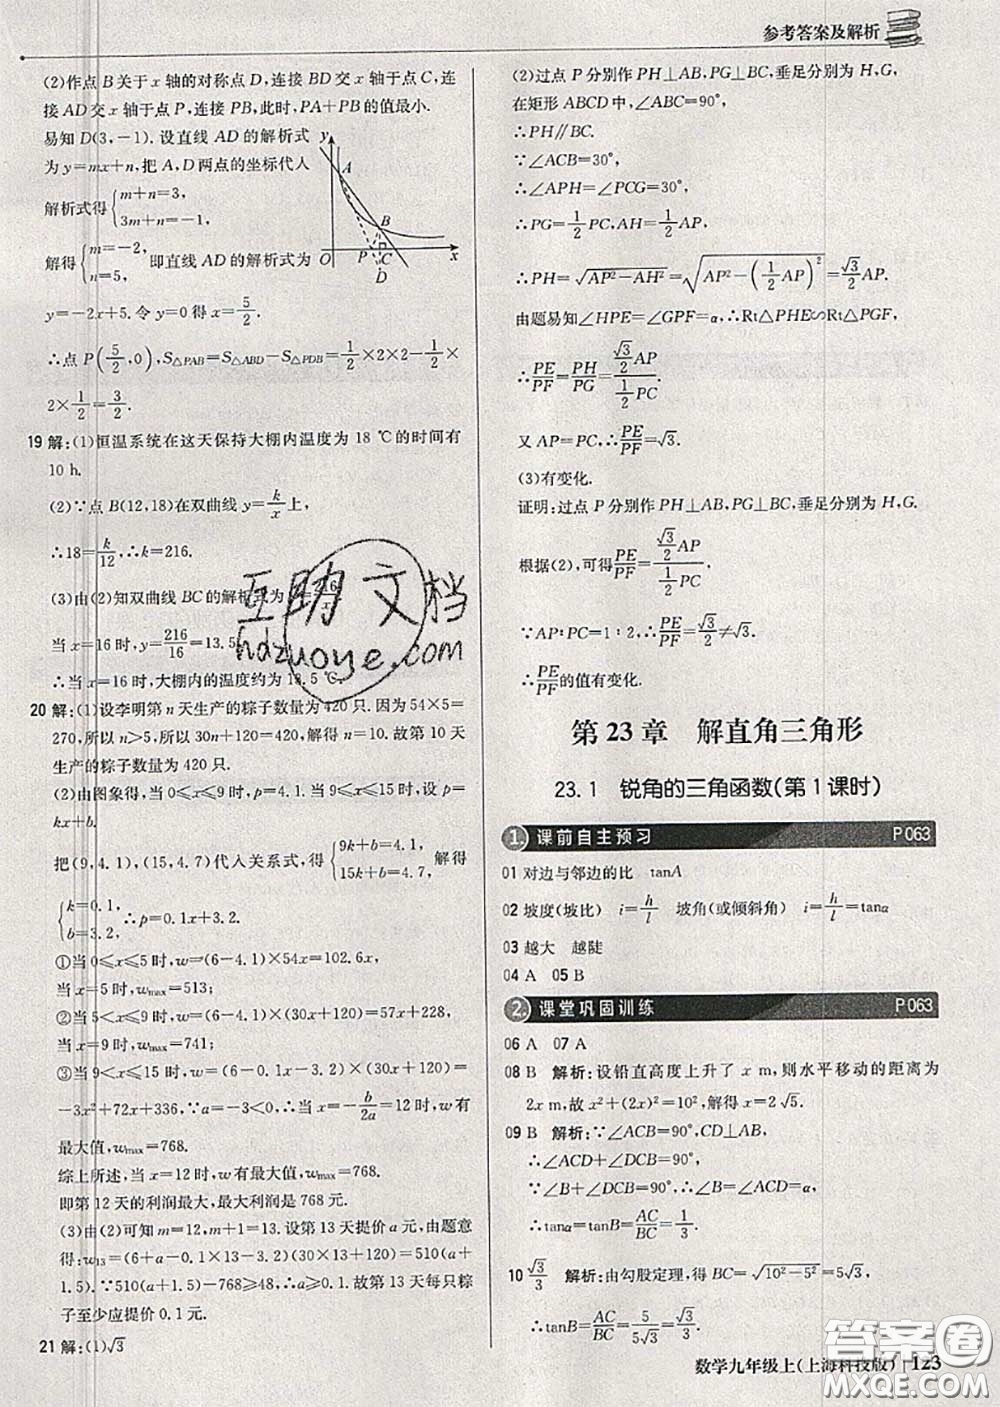 参考答案及解析
(2)作点 B 关于 x 轴的对称点 D,连接 BD 交 x 轴于点 C,连
接 AD 交 x 轴于点 P,连接 PB,此时,PA+PB 的值最小.
易知 D(3,-1). 设直线 AD 的解析式
为 y=mx+n,把 A,D 两点的坐标代入
解析式得{m+n=3, 3m+n=-1,
解得{m=-2, n=5, 即直线 AD 的解析式为
y A B O P C x D
y=-2x+5. 令 y=0 得 x=5/2.
∴点 P(5/2,0),S△PAB=S△ABD-S△PDB=1/2×2×2-1/2×
2×1/2=3/2.
19 解:(1)恒温系统在这天保持大棚内温度为 18 ℃的时间有
10 h.
(2)∵点 B(12,18)在双曲线 y=k/x上,
∴18=k/12,∴k=216.
(3)由(2)知双曲线 BC 的解析式为 y=216/x
当 x=16 时,y=216/16=13.5
∴当 x=16 时,大棚内的温度约为 13.5 ℃.
20 解:(1)设李明第 n 天生产的粽子数量为 420 只. 因为 54×5=
270,所以 n>5,所以 30n+120=420. 解得 n=10. 故第 10 天
生产的粽子数量为 420 只.
(2)由图象得,当 0≤x≤9 时,p=4.1;当 9≤x≤15 时,设 p=
kx+b.
把(9,4.1),(15,4.7)代入关系式,得{9k+b=4.1, 15k+b=4.7. 解得
{k=0.1, b=3.2. ∴p=0.1x+3.2.
①当 0≤x≤5 时,w=(6-4.1)×54x=102.6x,
当 x=5 时,wmax=513;
②当 5<x≤9 时,w=(6-4.1)×(30x+120)=57x+228,
当 x=9 时,wmax=741;
③当 9<x≤15 时,w=(6-0.1x-3.2)×(30x+120)=
-3x²+72x+336,∵a=-3<0,∴当 x=-b/2a=12 时,w 有
最大值,wmax=768.
综上所述,当 x=12 时,w 有最大值,wmax=768.
即第 12 天的利润最大,最大利润是 768 元.
(3)由(2)可知 m=12,m+1=13. 设第 13 天提价 a 元,由题意
得:w13=(6+a-0.1×13-3.2)(30×13+120)=510(a+
1.5). ∵510(a+1.5)-768≥48,∴a≥0.1. 故第 13 天每只粽
子至少应提价 0.1 元.
21 解:(1)√3
(2)过点 P 分别作 PH⊥AB,PG⊥BC,垂足分别为 H,G,
在矩形 ABCD 中,∠ABC=90°,
∴PH∥BC.
∵∠ACB=30°,
∴∠APH=∠PCG=30°,
∴PG=1/2PC,AH=1/2AP,
∴PH=√(AP²-AH²)=√(AP²-(1/2AP)²)=√3/2AP.
由题易知∠HPE=∠GPF=α,∴Rt△PHE∽Rt△PGF,
∴PE/PF=PH/PG=(√3/2AP)/(1/2PC).
又 AP=PC,∴PE/PF=√3.
(3)有变化.
证明:过点 P 分别作 PH⊥AB,PG⊥BC,垂足分别为 H,G.
根据(2),可得PE/PF=(√3/2AP)/(1/2PC).
∵AP∶PC=1∶2,∴PE/PF=√3/2≠√3.
∴PE/PF的值有变化.
第 23 章 解直角三角形
23.1 锐角的三角函数(第 1 课时)
1. 课前自主预习 P063
01 对边与邻边的比 tanA
02 坡度(坡比) i=h/l 坡角(或倾斜角) i=h/l=tanα
03 越大 越陡
04 A 05 B
2. 课堂巩固训练 P063
06 A 07 A
08 B 解析:设铅直高度上升了 x m,则水平移动的距离为
2x m,故 x²+(2x)²=10²,解得 x=2√5.
09 B 解析:∵∠ACB=90°,CD⊥AB,
∴∠ACD+∠DCB=90°,
∵∠B+∠DCB=90°,∴∠B=∠ACD=α,
∴tanα=tanB=AC/BC=1/3.
10 √3/3 解析:由勾股定理,得 BC=√(10²-5²)=5√3,
∴tanB=AC/BC=5/(5√3)=√3/3.
数学九年级上(上海科技版) 123
互助文档
hdzuoye.com
答案圈
MXQE.COM